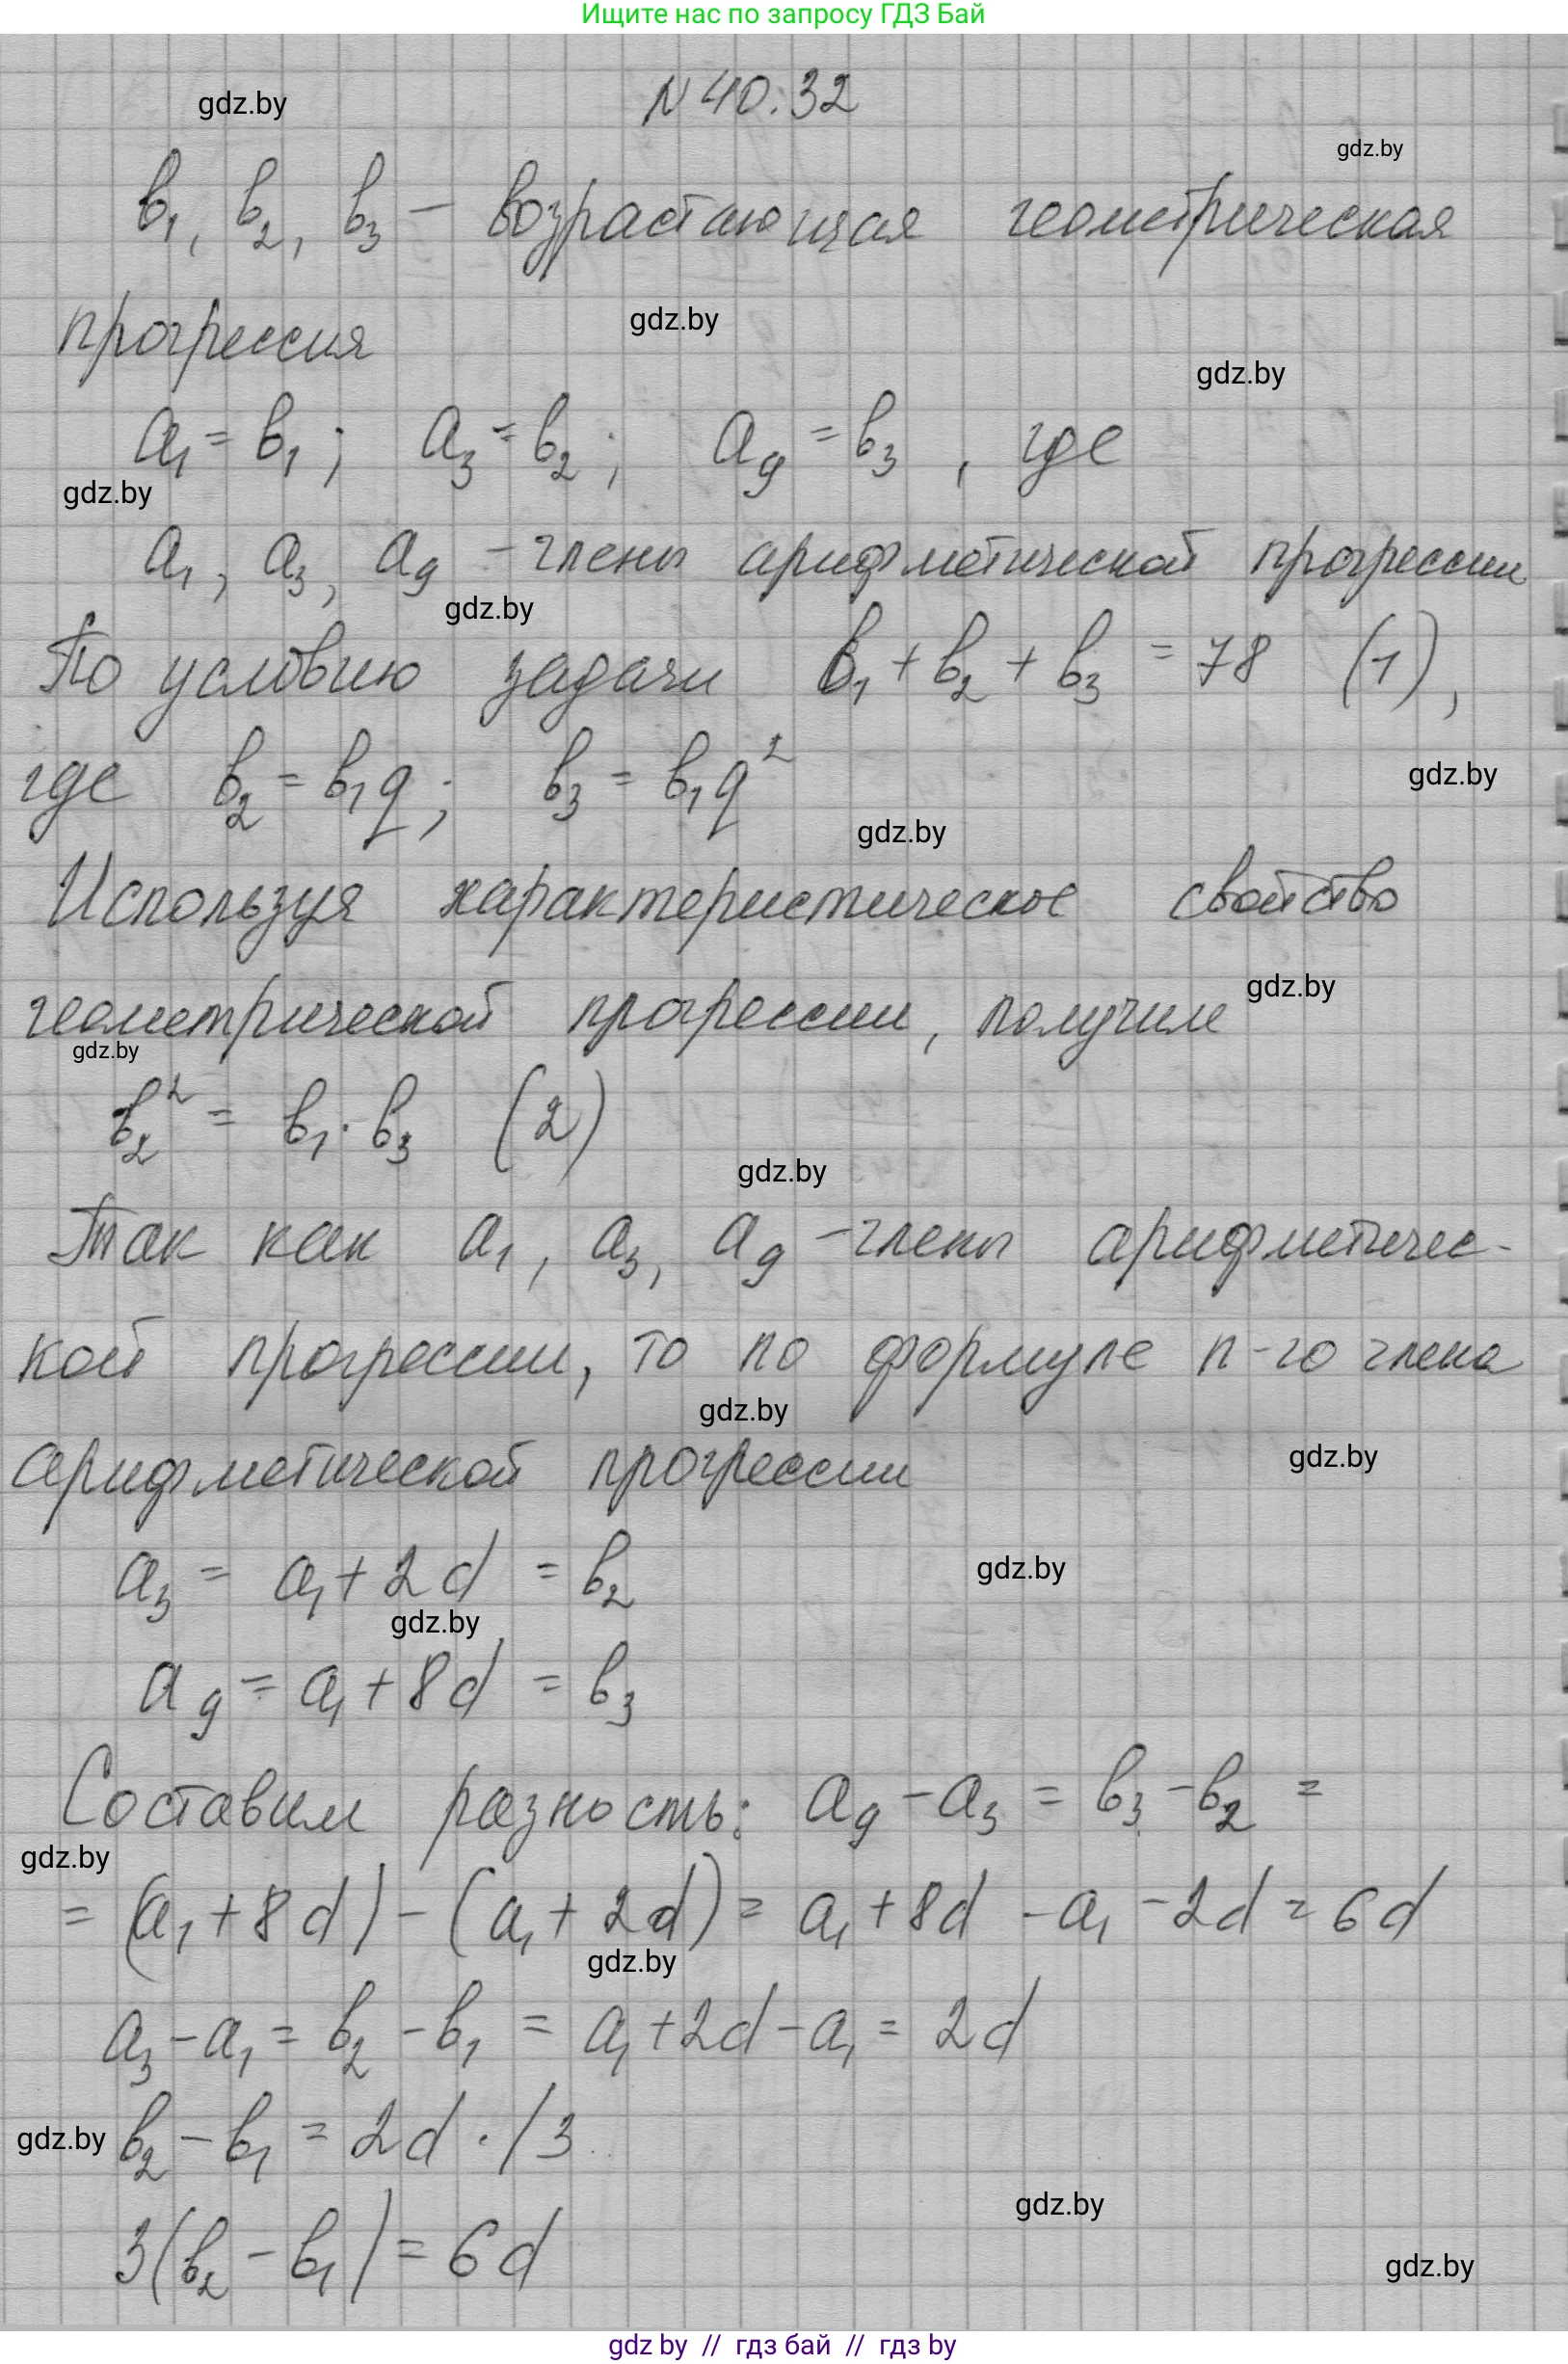 Ищите нас по запросу ГДЗ Бай
N 40.32
gdz.by
gdz.by
b₁, b₂, b₃ – возрастающая геометрическая
прогрессия
gdz.by
gdz.by
a₁ = b₁; a₃ = b₂; a₉ = b₃, где
gdz.by
a₁, a₃, a₉ – члены арифметической прогрессии
gdz.by
По условию задачи b₁ + b₂ + b₃ = 78 (1),
где b₂ = b₁q; b₃ = b₁q²
gdz.by
gdz.by
Используя характеристическое свойство
геометрической прогрессии, получим
gdz.by
gdz.by
b₂² = b₁ · b₃ (2)
gdz.by
Так как a₁, a₃, a₉ – члены арифметичес-
кой прогрессии, то по формуле n-го члена
gdz.by
арифметической прогрессии
gdz.by
a₃ = a₁ + 2d = b₂
gdz.by
gdz.by
a₉ = a₁ + 8d = b₃
Составим разность: a₉ – a₃ = b₃ – b₂ =
gdz.by
= (a₁ + 8d) – (a₁ + 2d) = a₁ + 8d – a₁ – 2d = 6d
gdz.by
a₃ – a₁ = b₂ – b₁ = a₁ + 2d – a₁ = 2d
gdz.by
b₂ – b₁ = 2d · / 3
gdz.by
3(b₂ – b₁) = 6d
gdz.by
gdz by // гдз бай // гдз by